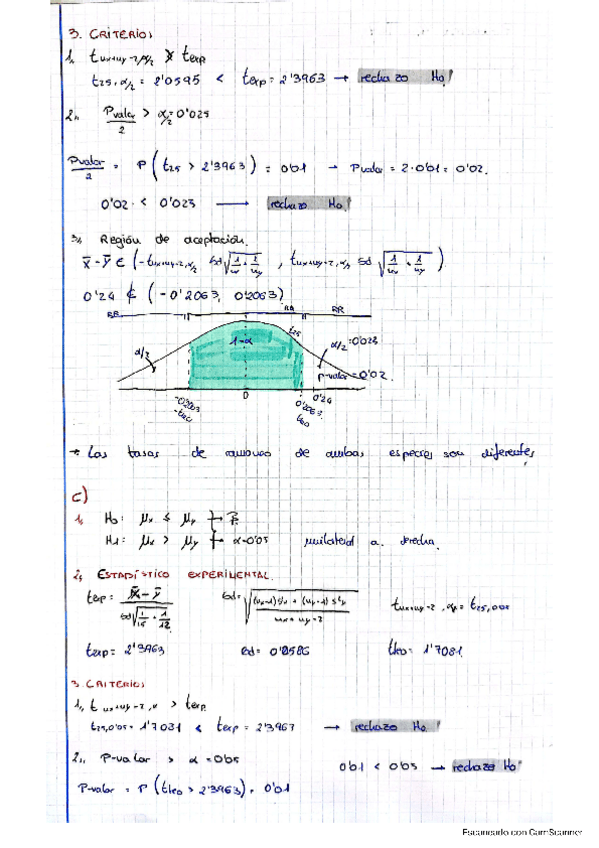 3. CRITERIOS
1. t ux+uy-2, α/2 > texp
t25, α/2 = 2'0595 < texp = 2'3963 → rechazo Ho!
2. Pvalor/2 > α/2 = 0'025
Pvalor/2 = P (t25 > 2'3963) = 0'01 → Pvalor = 2·0'01 = 0'02.
0'02 < 0'025 → rechazo Ho!
3. Región de aceptación.
x̄ - ȳ ∈ (-t ux+uy-2, α/2 sd √(1/ux + 1/uy) , t ux+uy-2, α/2 sd √(1/ux + 1/uy)).
0'24 ∉ (-0'2063, 0'2063)
RR RA RR
α/2 1-α t25 α/2 = 0'025
p-valor = 0'02.
-0'2063 0 0'2063 0'24
-tteo tteo
→ Las tasas de de ambas especies son diferentes
c)
1. Ho: μx ≤ μy
H1: μx > μy α=0'05 unilateral a derecha.
2. ESTADÍSTICO EXPERIMENTAL.
texp = x̄ - ȳ / sd √(1/15 + 1/12) sd = √((ux-1)s²x + (uy-1)s²y / ux+uy-2) t ux+uy-2, α = t25, 0'05
texp = 2'3963 sd = tteo = 1'7081
3. CRITERIOS
1. t ux+uy-2, α > texp
t25, 0'05 = 1'7081 < texp = 2'3967 → rechazo Ho!
2. P-valor > α = 0'05 0'01 < 0'05 → rechazo Ho!
P-valor = P (tteo > 2'3963) = 0'01
Escaneado con CamScanner